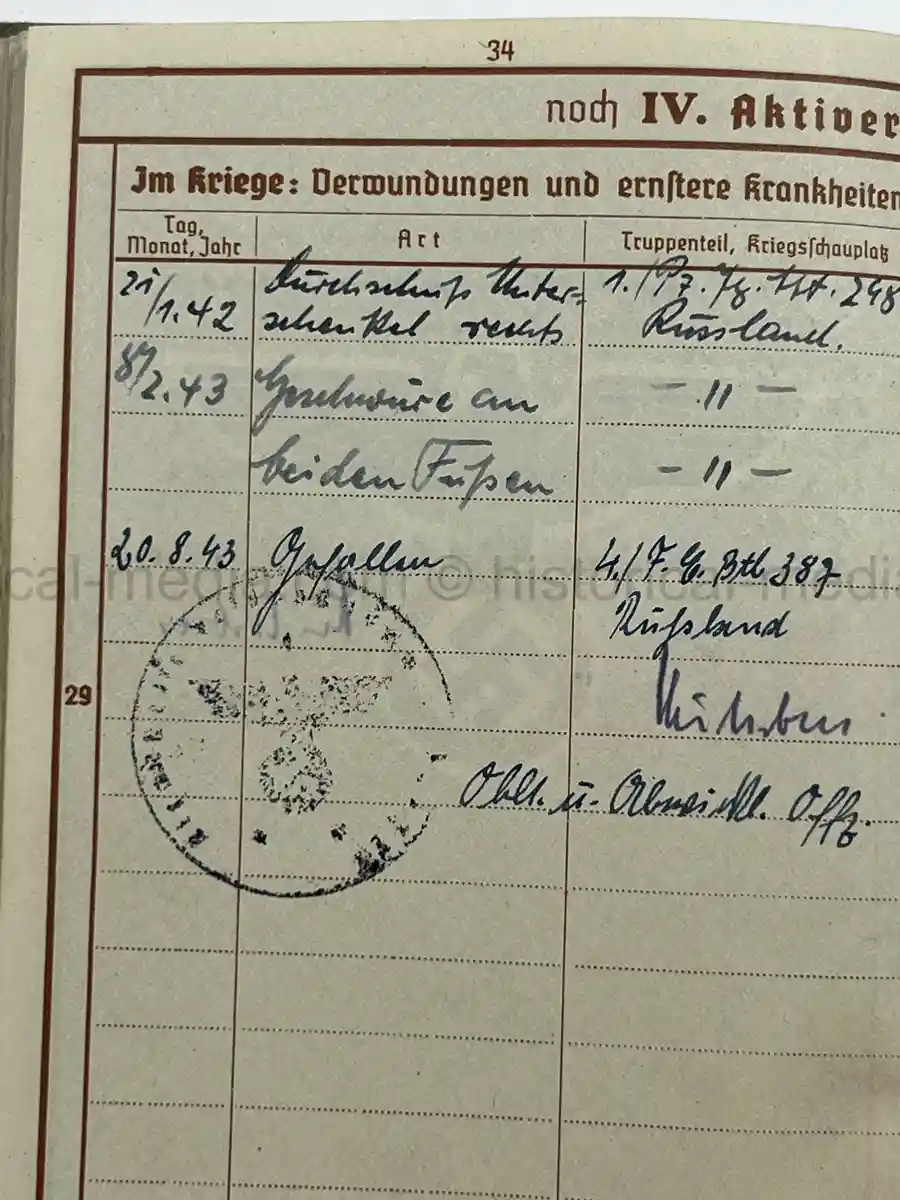 34
noch IV. Aktiver
Im Kriege: Verwundungen und ernstere Krankheiten
Tag,
Monat, Jahr
Art
Truppenteil, Kriegsschauplatz
21/1.42 Durchschuß Unter= 1./Pz. Jg. Abt. 248
schenkel rechts Russland.
8/2.43 Geschwüre an — 〃 —
beiden Füßen — 〃 —
20.8.43 Gefallen 4./F. E. Btl. 387
cal-media © historical media
Rußland
29
Oblt. u. Abwickl. Offz.